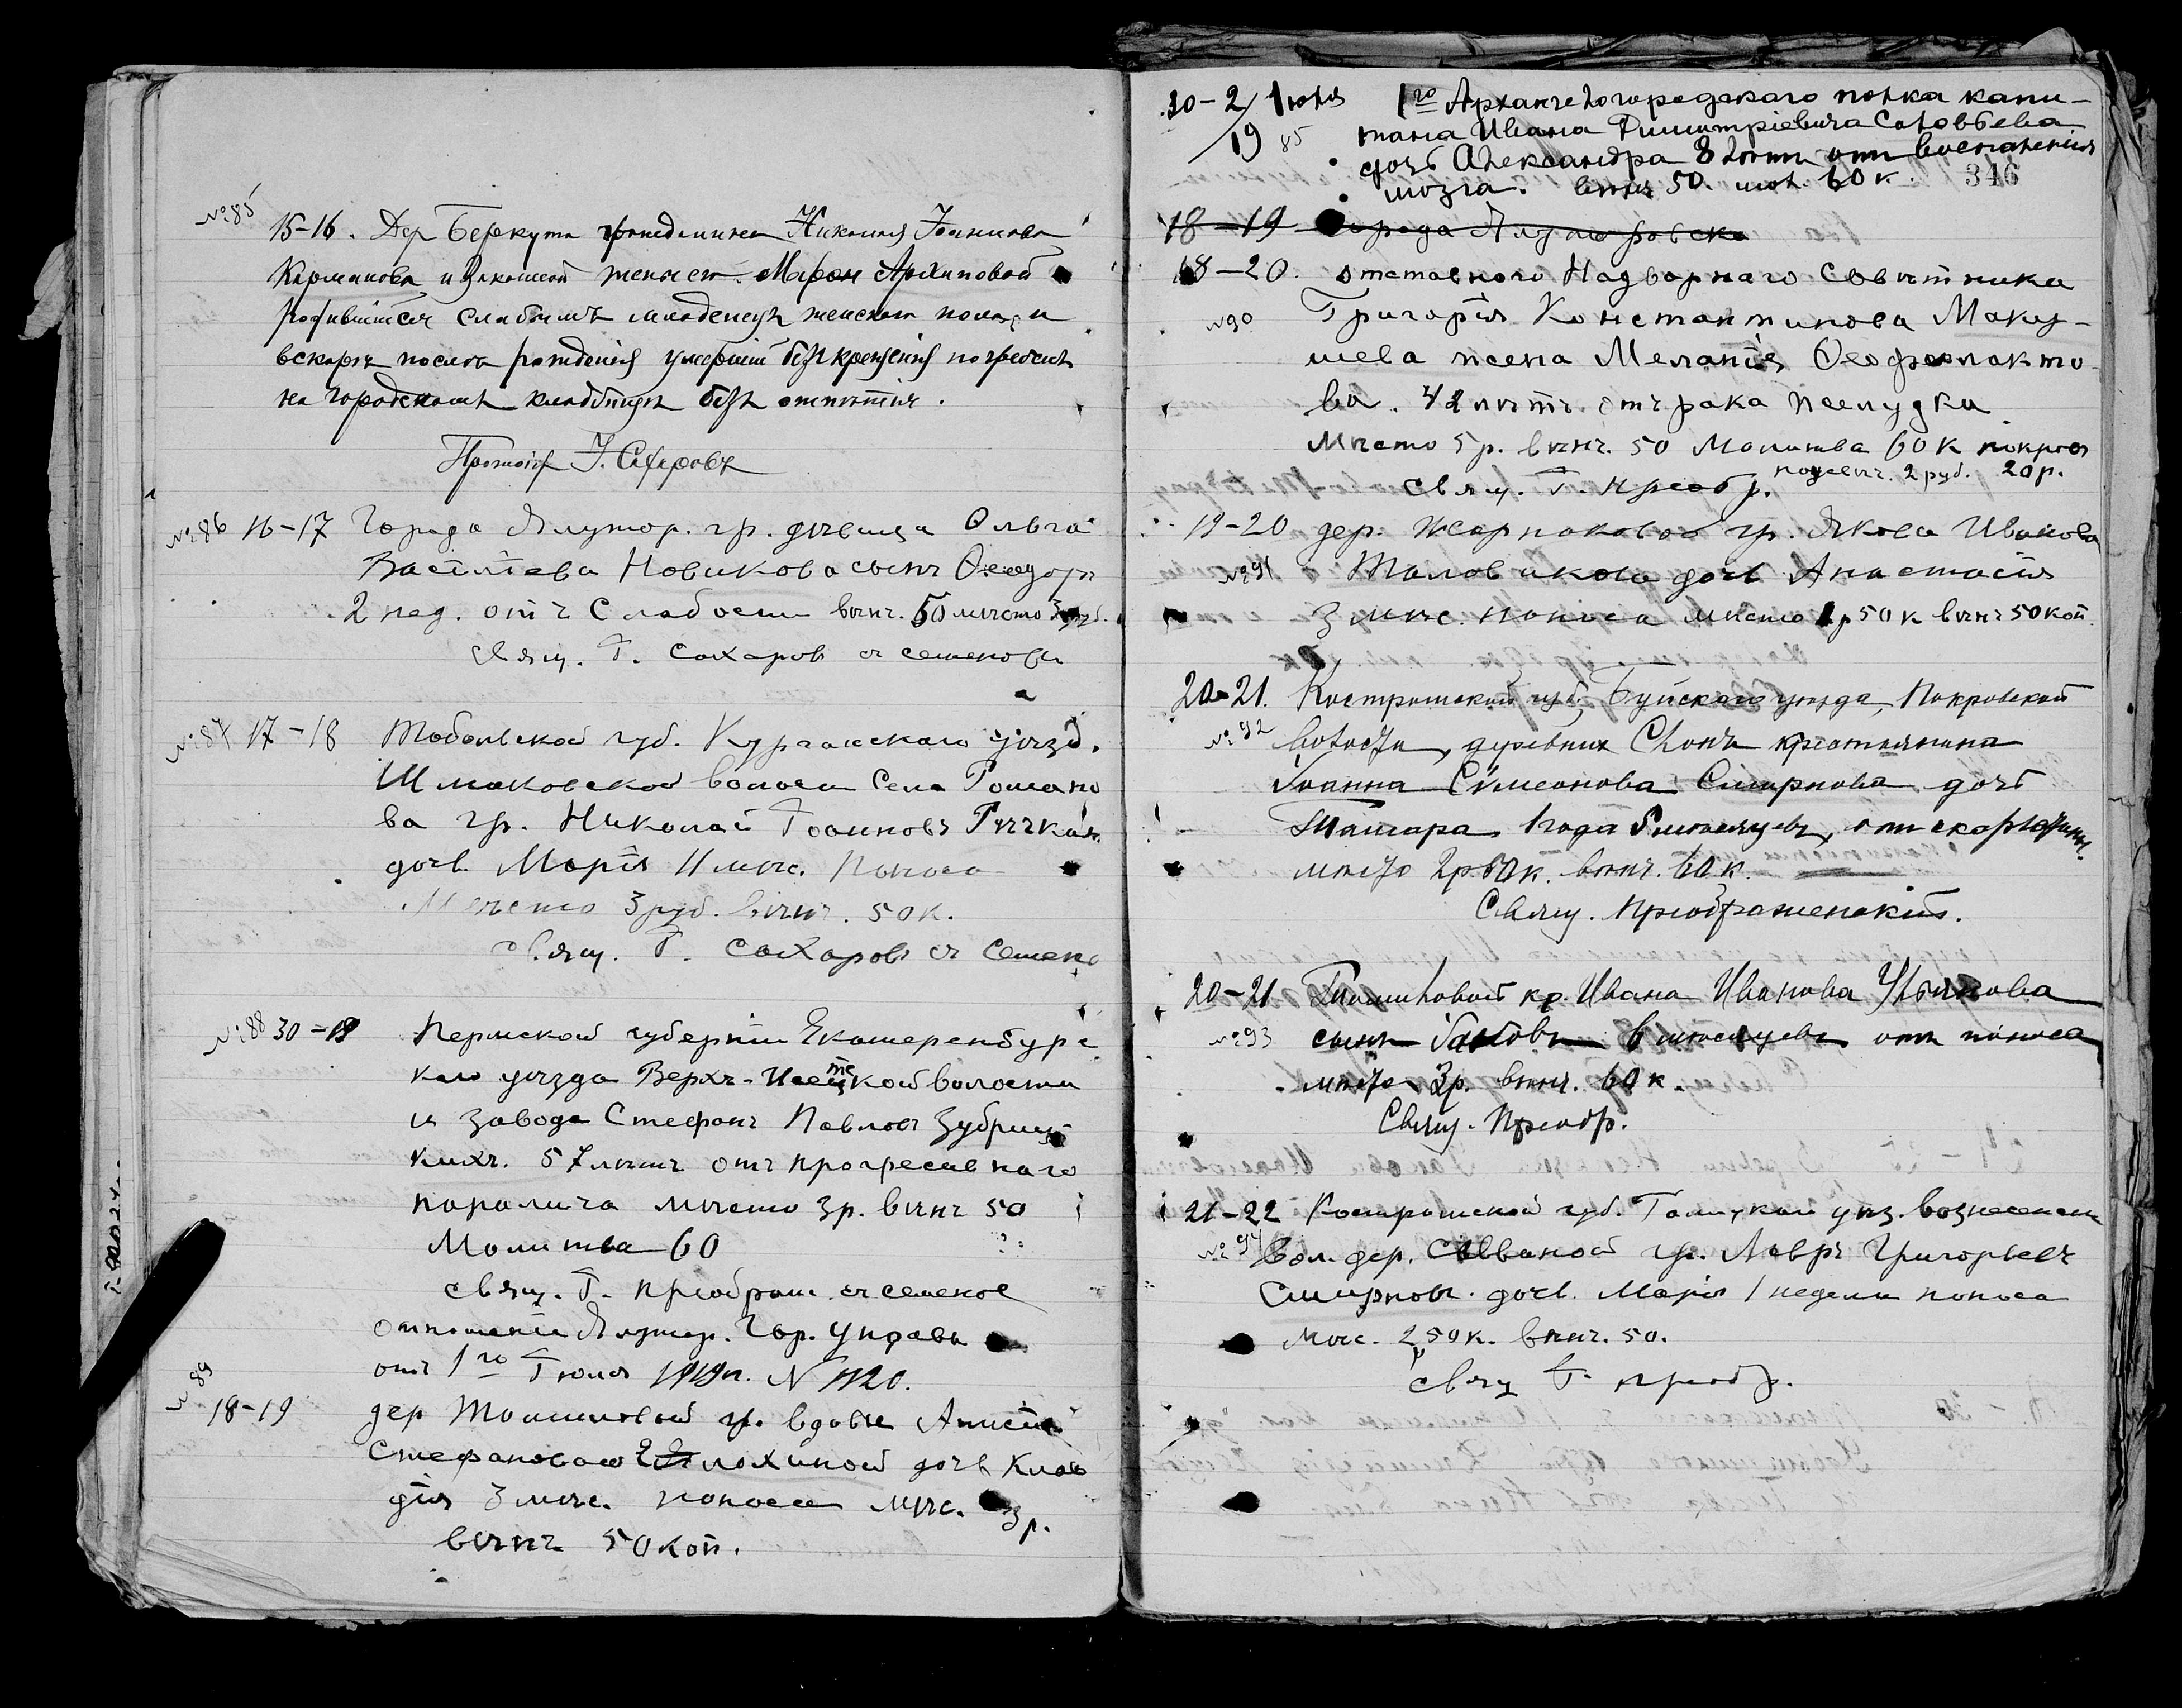 № 85
15-16. Дер Беркута гражданина Николая Іоаннова
Карманова и законной жены его Марѳы Архиповой
родившійся слабымъ младенецъ женскаго пола и
вскорѣ послѣ рожденія умершій безъ крещенія погребенъ
на городскомъ кладбищѣ безъ отпѣтія.
Протоіер І. Сахаровъ
№ 86 16-17 Города Ялутор. гр. дѣвица Ольга
Васіліева Новикова сынъ Ѳеодоръ
2 нед. отъ слабости вѣнч. 50 мѣсто 3 руб.
свящ. Г. Сахаров съ семенов
№ 87 17-18 Тобольской губ. Курганскаго уѣзд.
Шмаковской волости села Романо
ва гр. Николай Іоанновъ
дочь Марія 11 мѣс. поноса
Мѣсто 3 руб. вѣнч. 50 к.
свящ. Г. Сахаровъ съ семено
№ 88 30-19 Пермской губерніи Екатеренбургс
каго уѣзда Верхъ-Исецкой волости
и завода Стефанъ Павловъ Зубриц
кихъ. 57 лѣтъ отъ прогресивнаго
паралича мѣсто 3 р. вѣнч 50
Молитва 60
свящ. Г. Преображ. съ семенов
отношеніе Ялутор. Гор. Управы
отъ 1го Іюля 1919 г. N 1120.
№ 89
18-19 дер Томиловой гр. вдовы Анисіи
Стефановой лохиной дочь Клав
дія 3 мѣс. поноса мѣс. 3 р.
вѣнч 50 коп.
30-2/19 Іюля 1го Архангелогородскаго полка капи-
85 тана Ивана Димитріевича Соловьева
дочь Александра 8 лѣтъ отъ воспаленія
мозга. вѣнч 50. мол. 60 к.
346
18-19 Города Ялуторовска
18-20. отставного Надворнаго Совѣтника
№ 90 Григорія Константинова Маку-
шева жена Меланія Ѳеофилакто-
ва. 42 лѣтъ. отъ рака желудка
Мѣсто 5 р. вѣнч. 50 Молитва 60 к покров
2 руб. 20 р.
свящ. Г. Преобр.
19-20 дер. Жарниковой гр. Якова Иванова
№ 91 Таловикова дочь Анастасія
3 мѣс. поноса мѣсто 1 р 50 к вѣнч 50 коп.
20-21. Костромской губ, Буйскаго уѣзда, Покровской
№ 92 волости, деревни Слонъ крестьянина
Іоанна Сѵмеонова Смирнова дочь
Тамара 1 года мѣсяцевъ, отъ скарлатины.
мѣсто 2 р. 50 к. вѣнч. 60 к.
Свящ. Преображенскій.
20-21 Томиловой кр. Ивана Иванова
№ 93 сынъ Іаковъ 6 мѣсяцевъ отъ поноса
мѣсто 3 р. вѣнч. 60 к.
Свящ. Преобр.
21-22 Костромской губ. Галичскаго уѣз. Вознесенск
№ 94 вол. дер. гр. Лавръ Григорьевъ
Смирновъ. дочь. Марія 1 недели поноса
Мѣс. 2,50 к. вѣнч. 50.
свящ Г. Преобр.